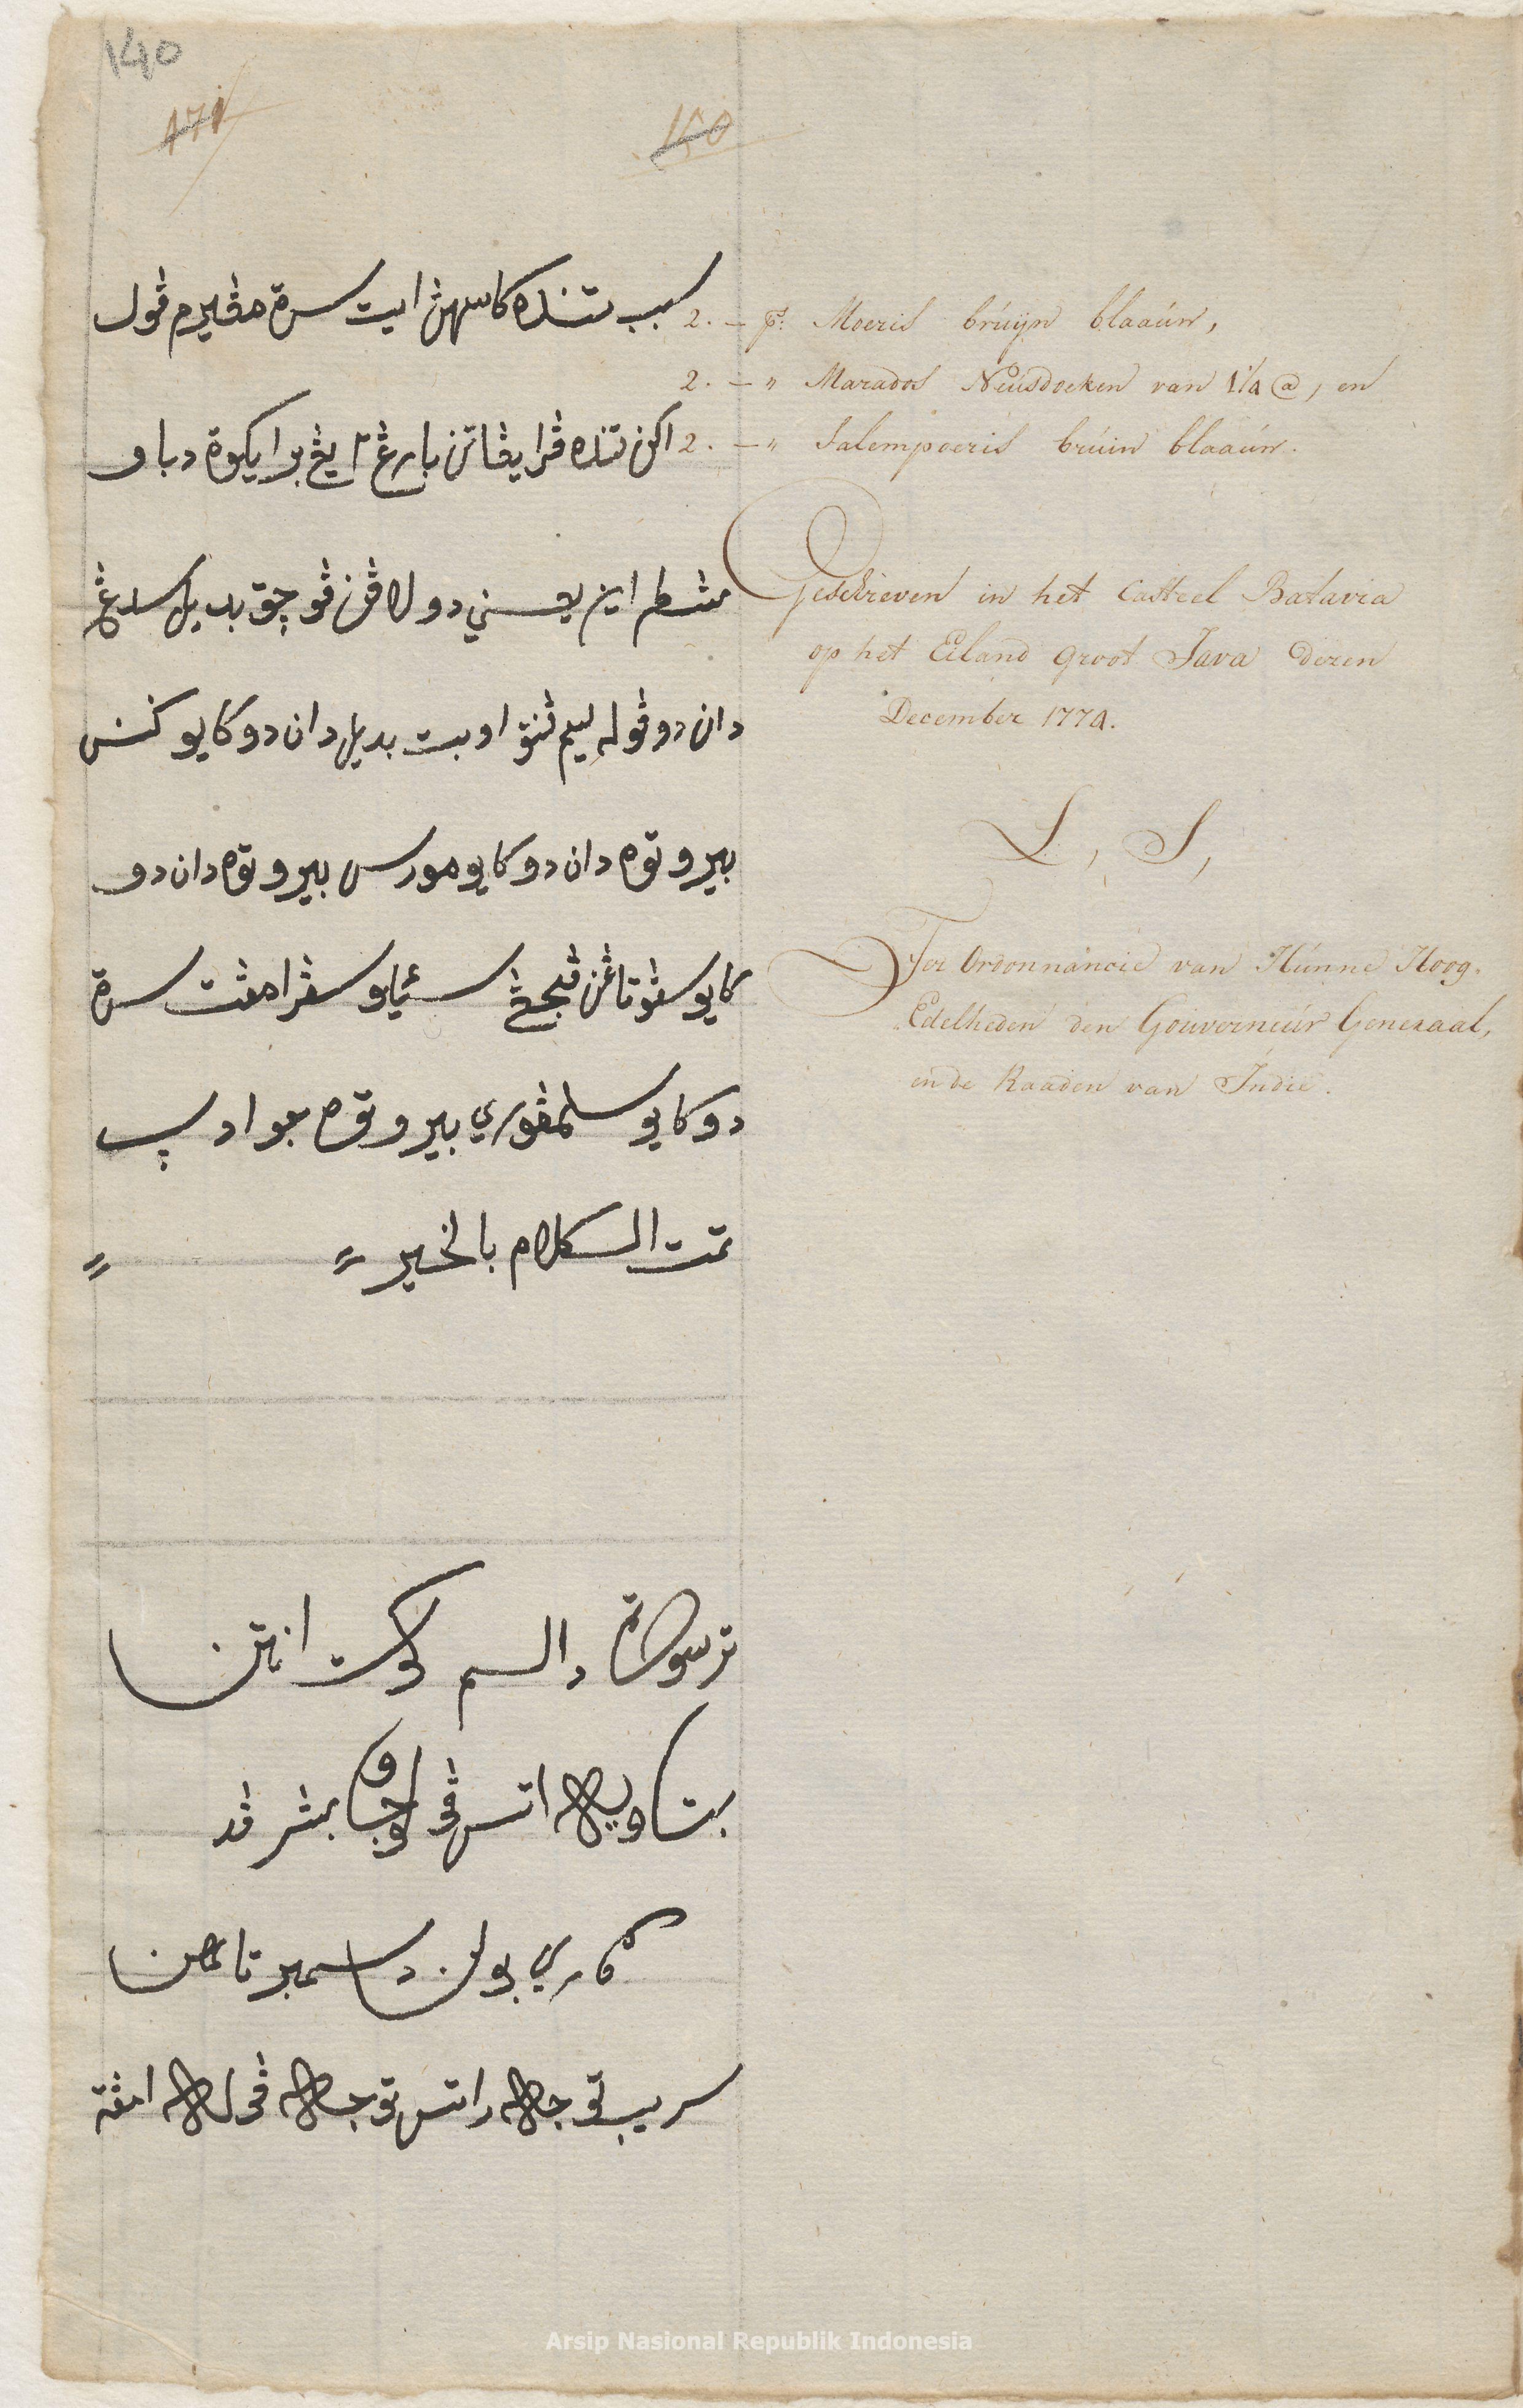 140
171
150
سبب تنده كاسهن ايت سرة مڠيرم ڤول
اكن تنده ڤرايڠاتن بارڠ٢ يڠ برايكوة دباو
مشطر اين يعني دولاڤن ڤوچق بديل سدڠ
دان دو ڤوله ليم ڤنق اوبت بديل دان دو كايو كنس
بيرو توه دان دو كايو مورس بيرو توه دان دو
كايو سڤوتاڠن ڤنجڠ سئيلو سڤرامڤت سرة
دو كايو سلمڤوري بيرو توه بعوادپ
تمت الكلام بالخير
ترسورة دالم كوت انتن
بتاويه اتس ڤولو جاو بسر ڤد
هاري بولن دسمبر تاهن
سريب توجه راتس توجه ڤوله امڤت
2. – ps. Moeris brúijn blaaúw,
2. – " Marados Neúsdoeken van 1¼ @, en
2. – " Salempoeris brúin blaaúw.
Geschreven in het Casteel Batavia
op het Eiland groot Java dezen
December 1774.
L, S,
Ter Ordonnancie van Húnne Hoog-
Edelheden den Goúverneúr Generaal,
en de Raaden van Indie.
Arsip Nasional Republik Indonesia